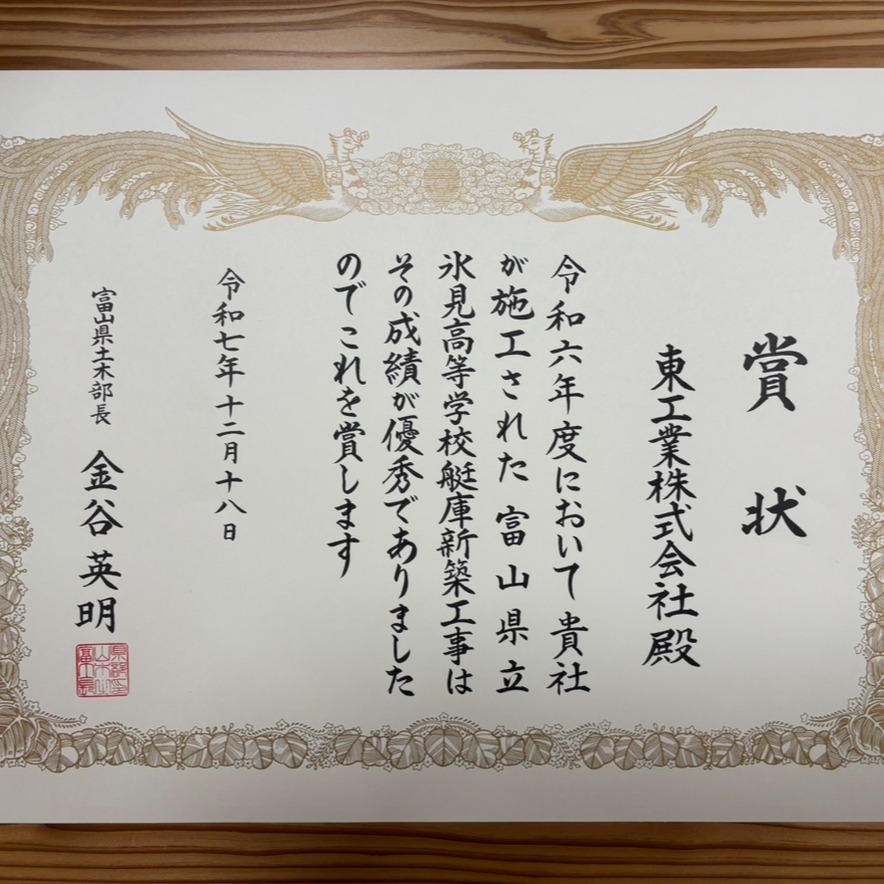 賞状
東工業株式会社殿
令和六年度において貴社
が施工された富山県立
氷見高等学校艇庫新築工事は
その成績が優秀でありました
のでこれを賞します
令和七年十二月十八日
富山県土木部長 金谷英明